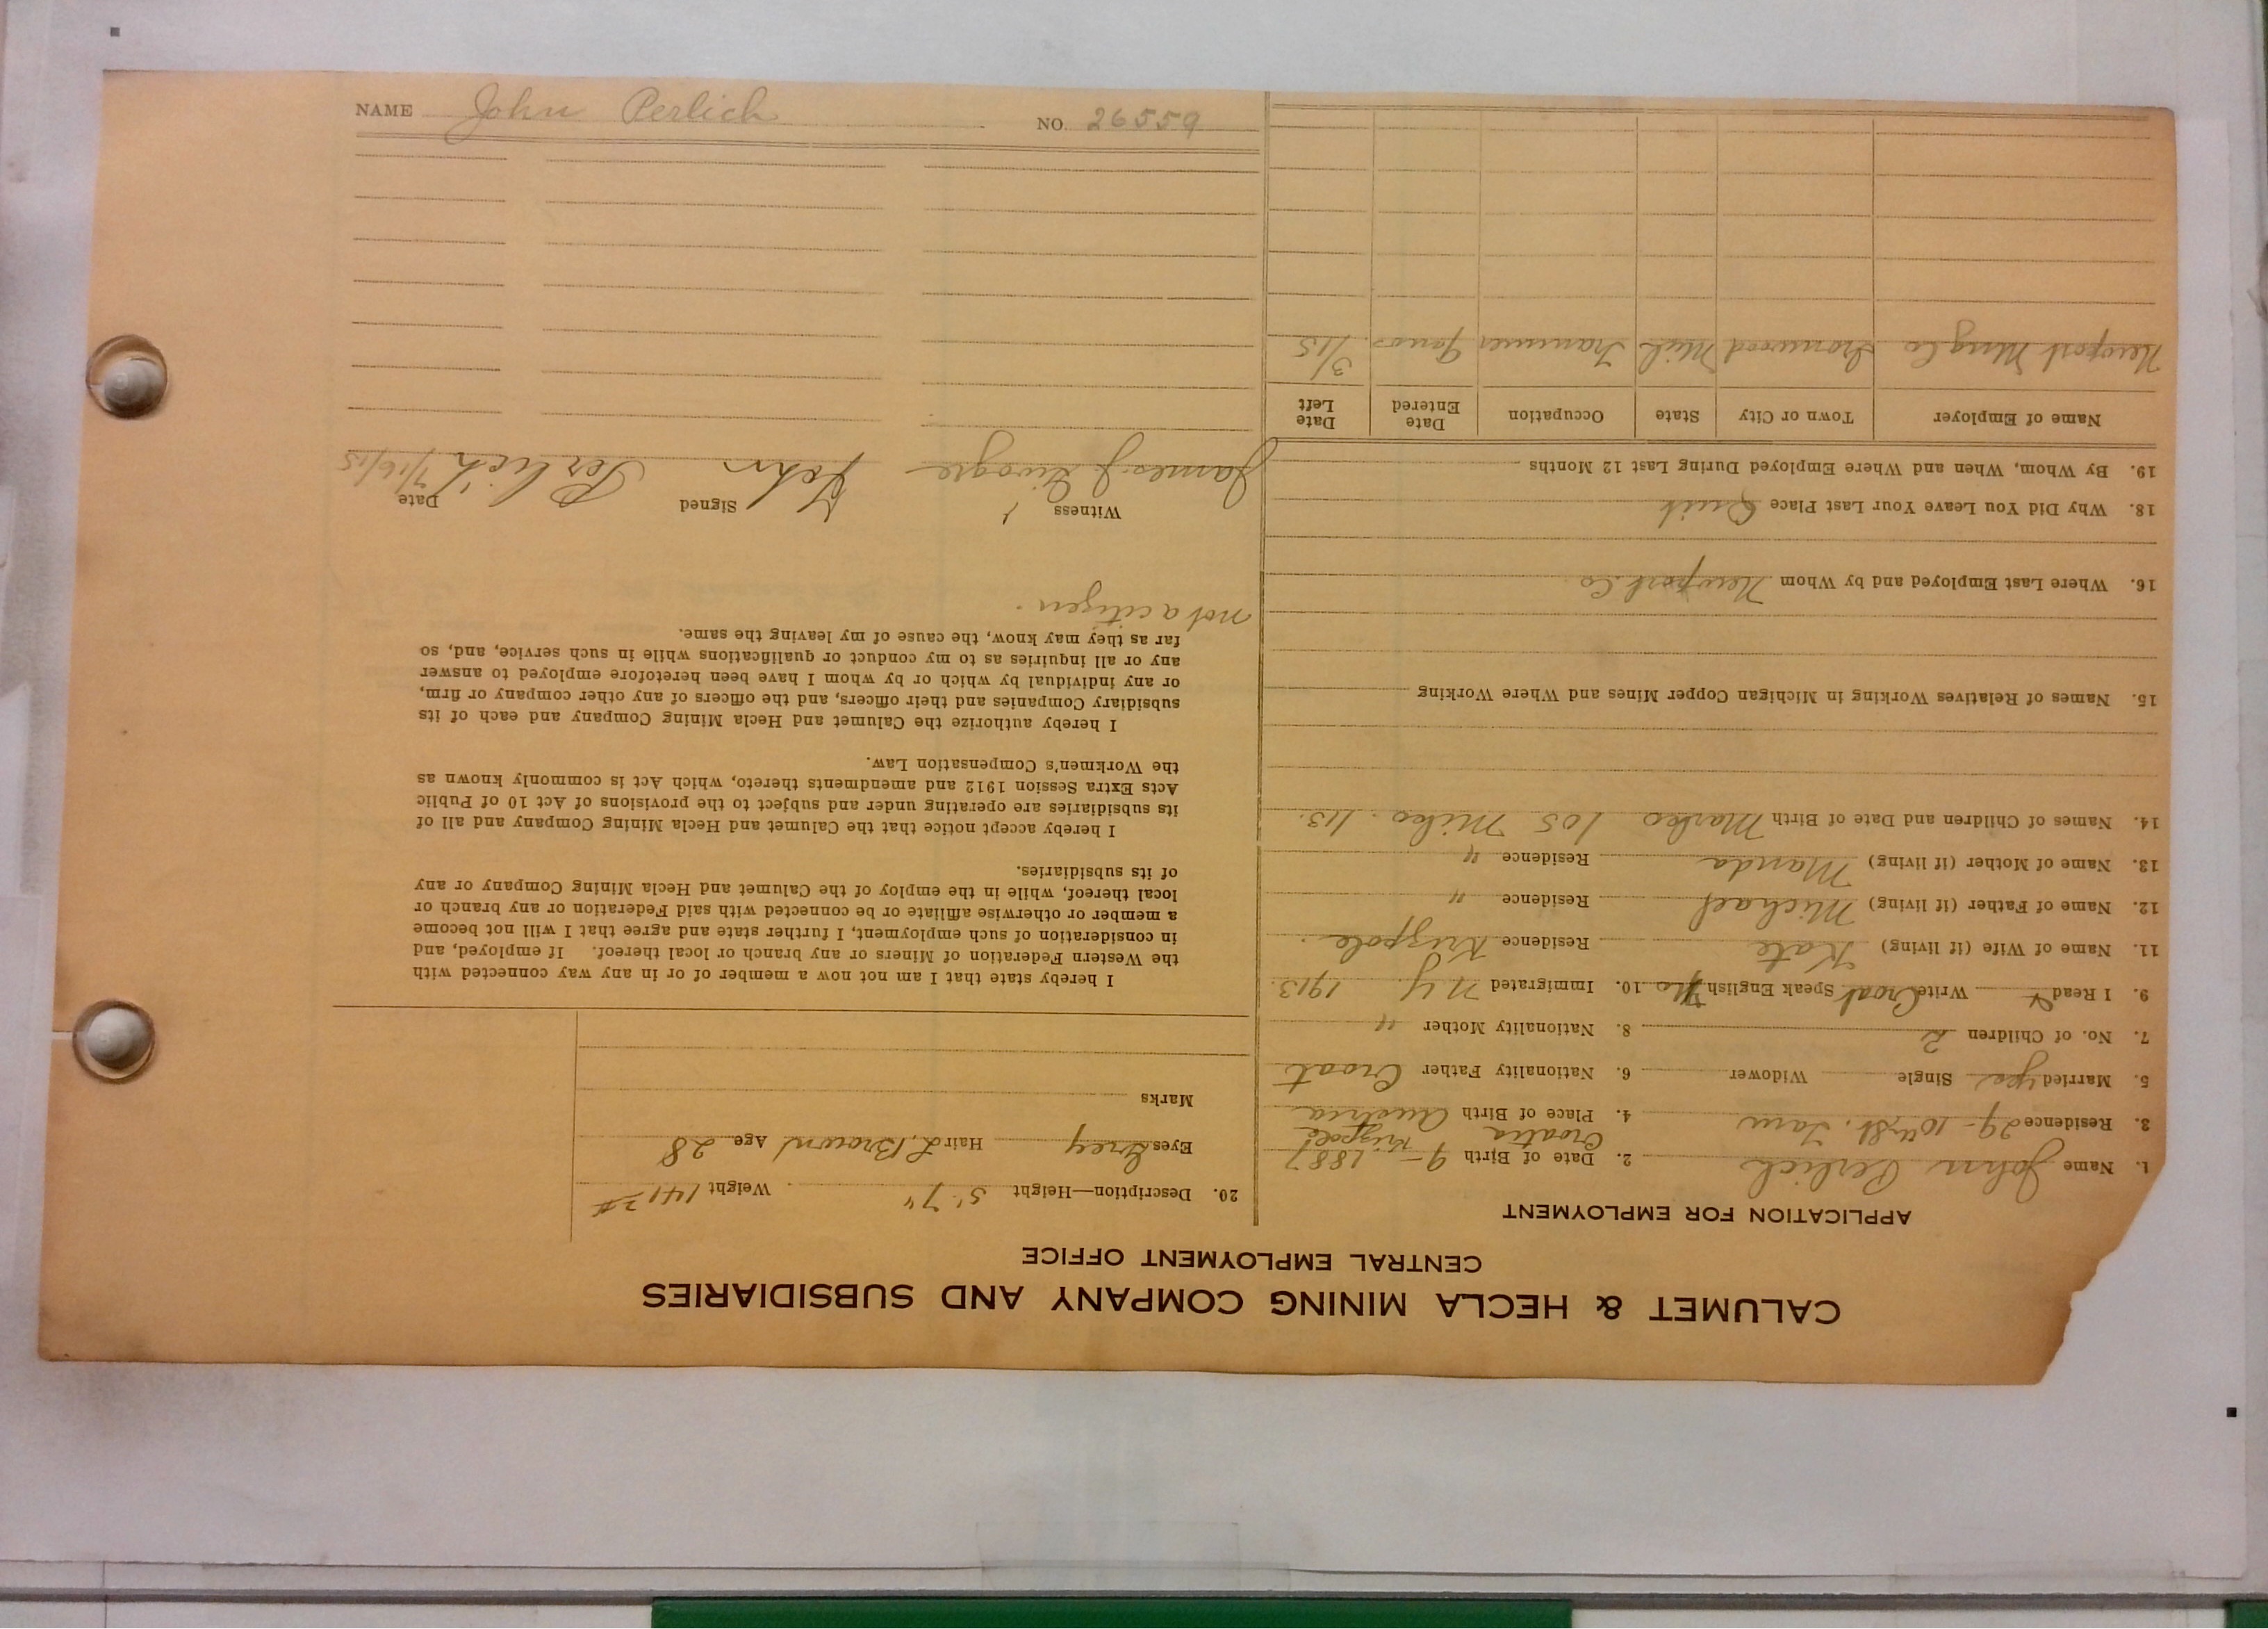 CALUMET & HECLA MINING COMPANY AND SUBSIDIARIES
CENTRAL EMPLOYMENT OFFICE
APPLICATION FOR EMPLOYMENT
1. Name John Perlich 2. Date of Birth 9 – 1887
3. Residence 29–10th St. 4. Place of Birth Croatia Austria
5. Married yes Single Widower 6. Nationality Father Croat
7. No. of Children 2 8. Nationality Mother "
9. I Read Write Croat Speak English No 10. Immigrated N.Y. 1913.
11. Name of Wife (if living) Kate Residence Krizpole.
12. Name of Father (if living) Michael Residence "
13. Name of Mother (if living) Manda Residence "
14. Names of Children and Date of Birth Marko 105 Miko. 113.
15. Names of Relatives Working in Michigan Copper Mines and Where Working
16. Where Last Employed and by Whom Newport Co
18. Why Did You Leave Your Last Place Quit
19. By Whom, When and Where Employed During Last 12 Months
Name of Employer Town or City State Occupation Date Entered Date Left
Newport Ming Co Ironwood Mich Trammer 3/15
20. Description—Height 5' 7" Weight 141
Eyes Grey Hair L. Brown Age 28
Marks
I hereby state that I am not now a member of or in any way connected with
the Western Federation of Miners or any branch or local thereof. If employed, and
in consideration of such employment, I further state and agree that I will not become
a member or otherwise affiliate or be connected with said Federation or any branch or
local thereof, while in the employ of the Calumet and Hecla Mining Company or any
of its subsidiaries.
I hereby accept notice that the Calumet and Hecla Mining Company and all of
its subsidiaries are operating under and subject to the provisions of Act 10 of Public
Acts Extra Session 1912 and amendments thereto, which Act is commonly known as
the Workmen's Compensation Law.
I hereby authorize the Calumet and Hecla Mining Company and each of its
subsidiary Companies and their officers, and the officers of any other company or firm,
or any individual by which or by whom I have been heretofore employed to answer
any or all inquiries as to my conduct or qualifications while in such service, and, so
far as they may know, the cause of my leaving the same.
not a citizen.
Witness Signed Date
James J John Perlich 7/16/15
NAME John Perlich NO. 26559